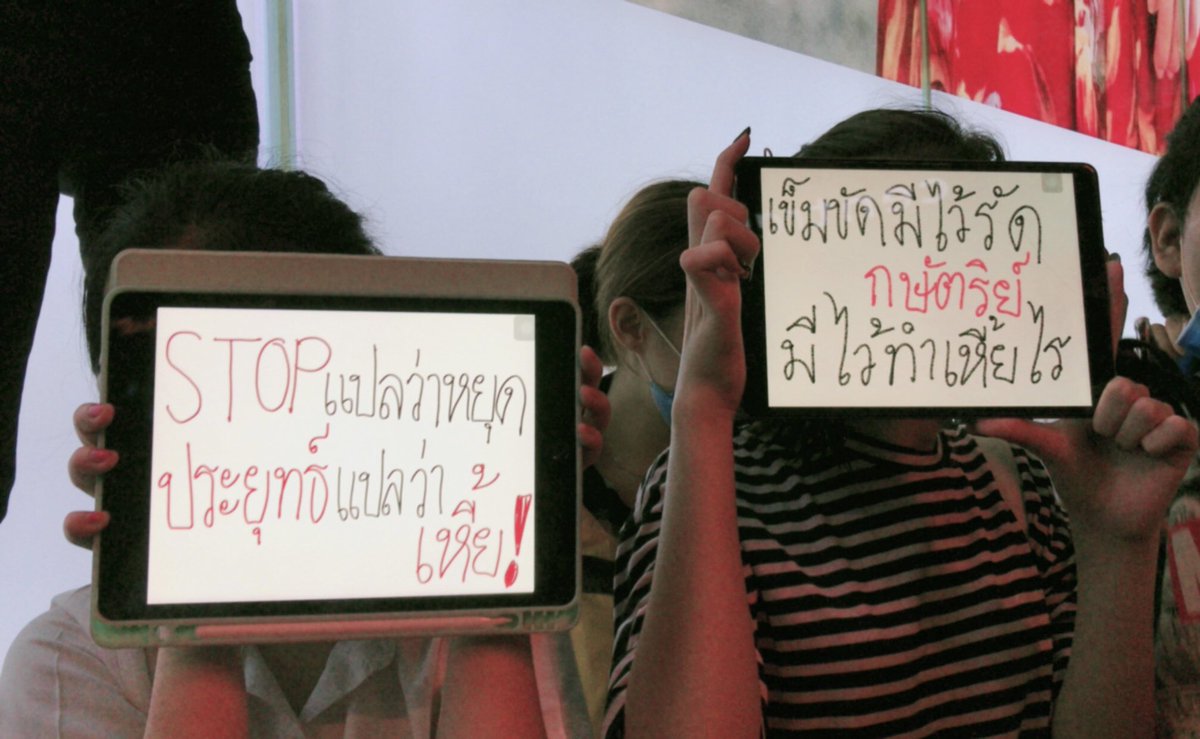 STOPแปลว่าหยุด
ประยุทธ์แปลว่า
เหี้ย!
เข็มขัดมีไว้รัด
กษัตริย์
มีไว้ทำเหี้ยไร